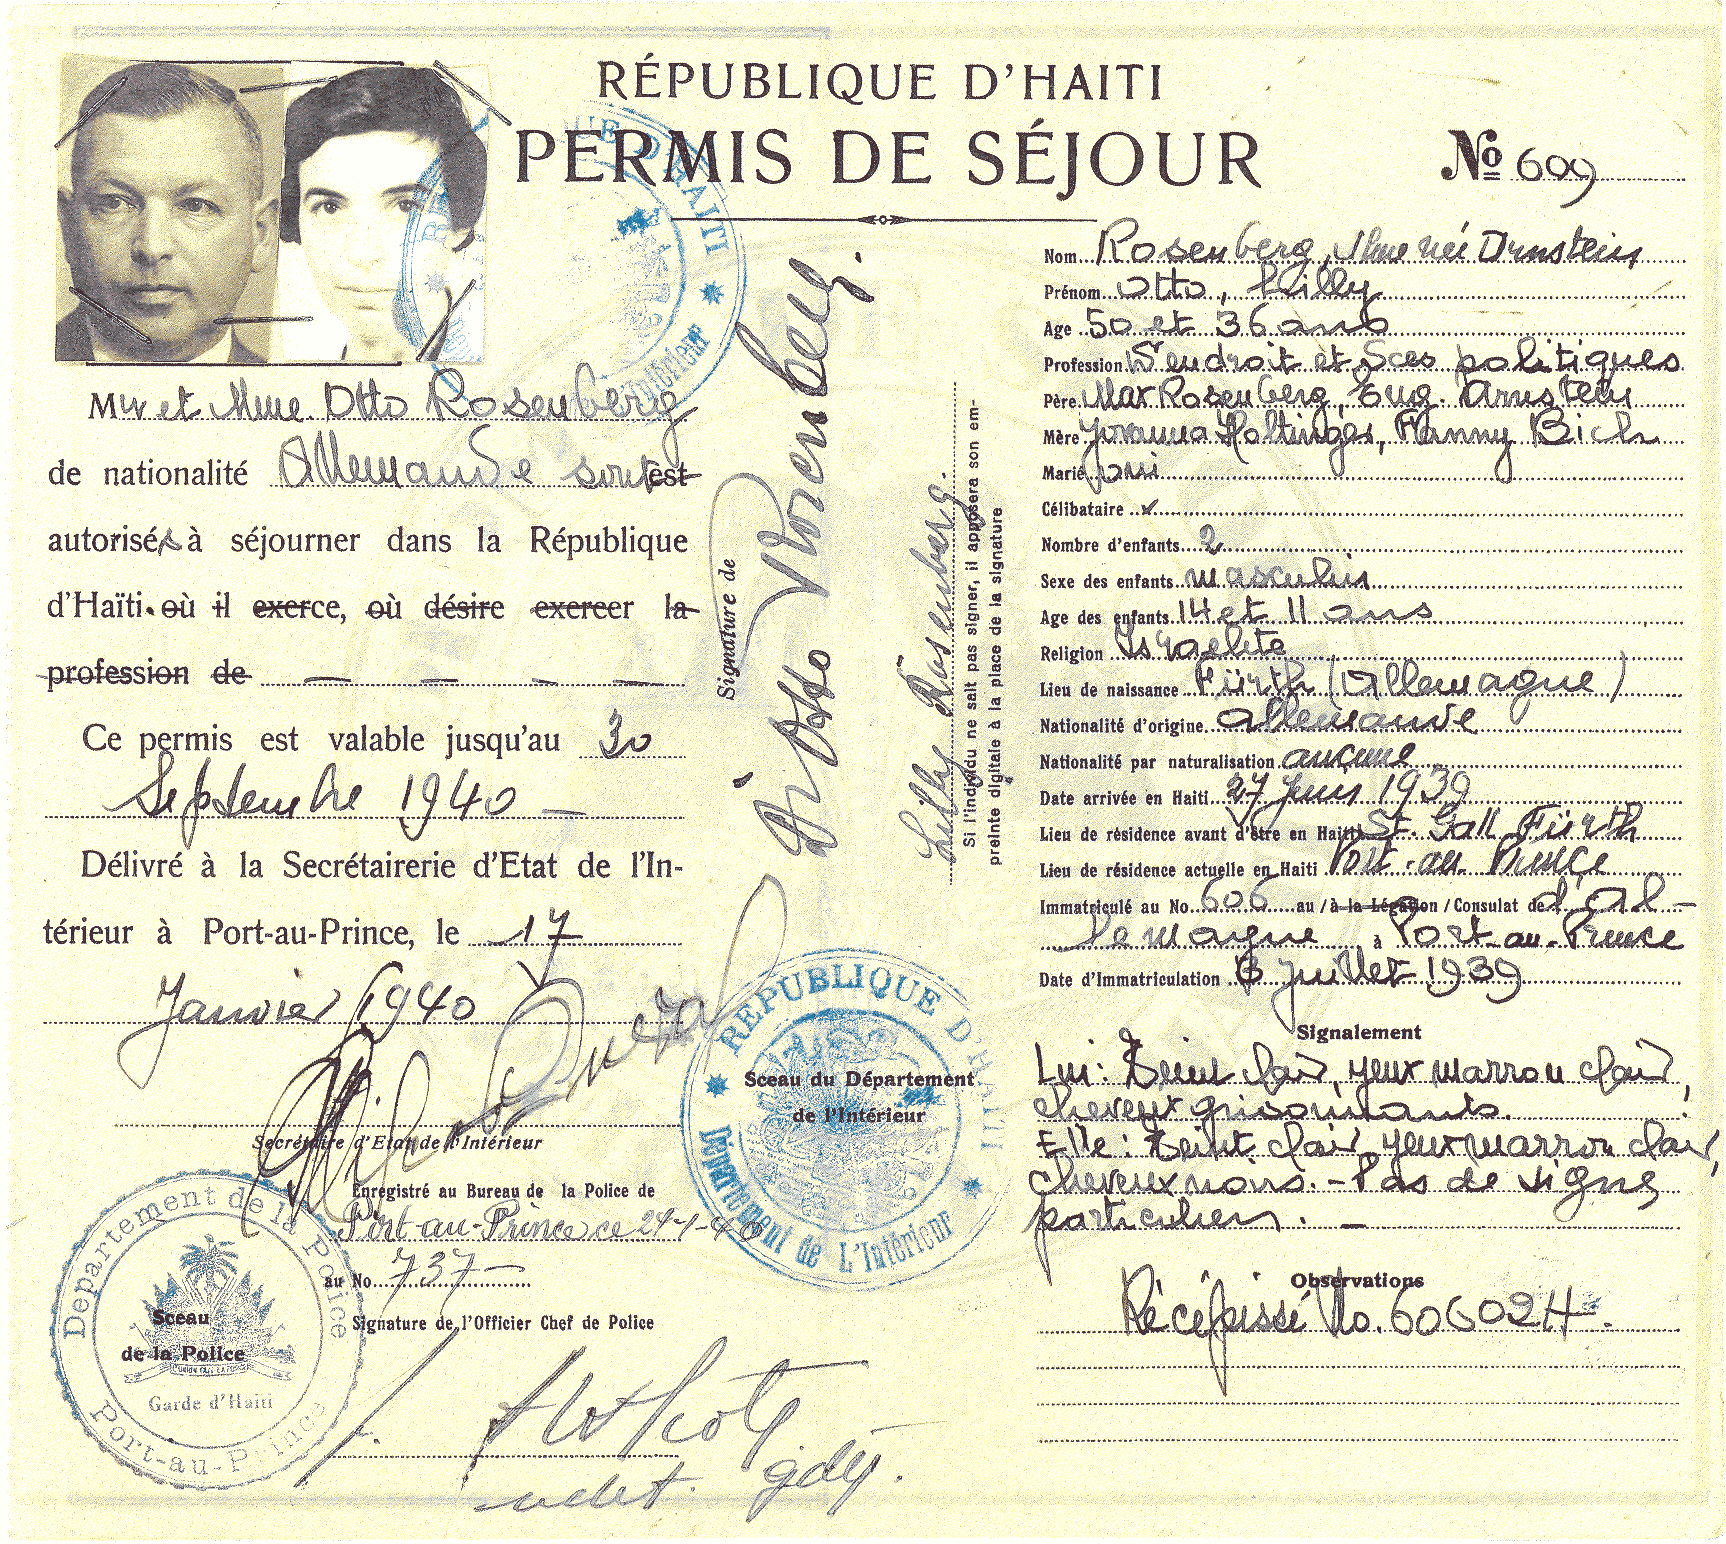 RÉPUBLIQUE D'HAITI
PERMIS DE SÉJOUR
No 609
Mr et Mme. Otto Rosenberg
de nationalité Allemande sont est
autorisés à séjourner dans la République
d'Haïti. où il exerce, où désire exercer la
profession de — — — —
Ce permis est valable jusqu'au 30
Septembre 1940 —
Délivré à la Secrétairerie d'Etat de l'In-
térieur à Port-au-Prince, le 17
Janvier 1940
Secrétaire d'Etat de l'Intérieur
Enregistré au Bureau de la Police de
Port-au-Prince ce 24-1-40
au No. 737 —
Signature de l'Officier Chef de Police
Département de la Police
Sceau
de la Police
Garde d'Haiti
Port-au-Prince
Signature de
Dr Otto Rosenberg.
Lilly Rosenberg.
Si l'individu ne sait pas signer, il apposera son em-
preinte digitale à la place de la signature
RÉPUBLIQUE D'HAITI
Sceau du Département
de l'Intérieur
Département de L'Intérieur
Nom Rosenberg, Mme née Ornstein
Prénom Otto, Lilly
Age 50 et 36 ans
Profession Dr en droit et Sces politiques
Père Max Rosenberg, Eug. Ornstein
Mère Fanny
Marié oui
Célibataire
Nombre d'enfants 2
Sexe des enfants masculin
Age des enfants 14 et 11 ans
Religion Israelite
Lieu de naissance Fürth (Allemagne)
Nationalité d'origine allemande
Nationalité par naturalisation aucune
Date arrivée en Haiti 27 Juin 1939
Lieu de résidence avant d'être en Haiti St. Gall Fürth
Lieu de résidence actuelle en Haiti Port-au-Prince
Immatriculé au No 606 au / à la Légation / Consulat de d'Al-
lemagne à Port-au-Prince
Date d'Immatriculation 6 juillet 1939
Signalement
Lui: Teint clair, yeux marron clair,
cheveux grisonnants.
Elle: Teint clair, yeux marron clair,
cheveux noirs. - Pas de signe
particuliers. —
Observations
Récépissé No. 60602H.